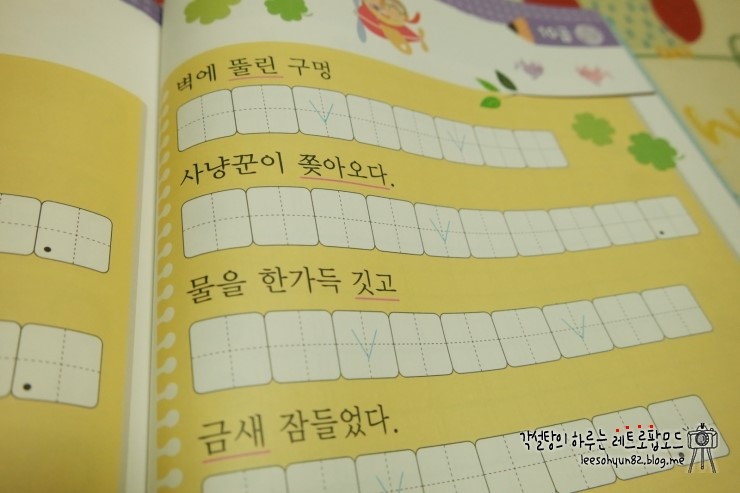 벽에 뚫린 구멍
사냥꾼이 쫓아오다.
물을 한가득 깃고
금새 잠들었다.
각설탕의 하루는 레트로팝모드
leesohyun82.blog.me